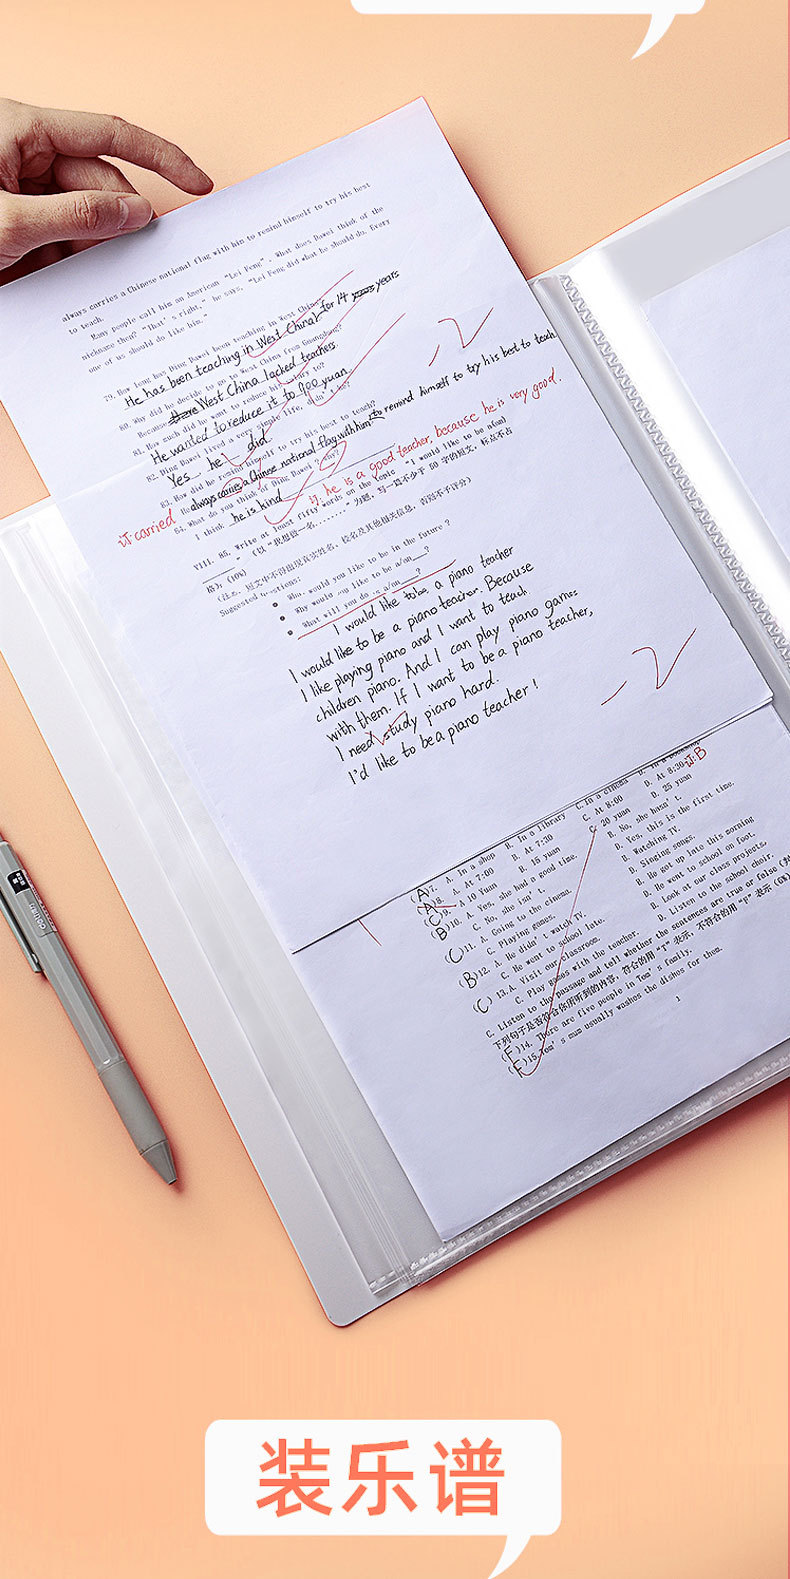 always carries a Chinese national flag with him to remind himself to try his best
to teach.
Many people call him an American "Lei Feng". What does Dawei think of the
nickname then? "That's right," he says, "Lei Feng did what he should do. Every
one of us should do like him."
79. How long has Ding Dawei been teaching in West China?
He has been teaching in West China for 14 years years
80. Why did he decide to go to West China from Guangdong?
Because there West China lacked teachers.
81. How much did he want to reduce his salary to?
He wanted to reduce it to 900 yuan
82. Ding Dawei lived a very simple life, didn't he?
Yes he did.
83. How did he remind himself to try his best to teach?
He always carries a Chinese national flag with him to remind himself to try his best to teach
84. What do you think of Ding Dawei? Why?
I think he is kind
订. he is a good teacher, because he is very good.
订 carried
-2
VIII. 85. Write at least fifty words on the topic "I would like to be a(an)
______". (以"我想做一名........"为题，写一篇不少于 50 字的短文，标点不占
格): (10%)
(注意：短文中不得出现真实姓名、校名及其他相关信息，否则不予评分)
Suggested questions:
● Who would you like to be in the future ?
● Why would you like to be a/an___?
● What will you do as a/an___?
I would like to be a piano teacher
I would like to be a piano teacher. Because
I like playing piano and I want to teach
children piano. And I can play piano games
with them. If I want to be a piano teacher,
I need study piano hard.
I'd like to be a piano teacher!
-2
(A)7. A. In a shop B. In a library C. In a cinema D. In a bookshop
(A)8. A. At 7:00 B. At 7:30 C. At 8:00 D. At 8:30 订:B
(C)9. A 10 Yuan B. 15 yuan C. 20 yuan D. 25 yuan
(B)10. A. Yes, she had a good time. B. No, she hasn't.
C. No, she isn't. D. Yes, this is the first time.
(C)11. A. Going to the cinema. B. Watching TV.
C. Playing games. D. Singing songs.
(B)12. A. He didn't watch TV. B. He got up late this morning
C. He went to school late. D. He went to school on foot.
(C)13. A. Visit our classroom. B. Look at our class projects.
C. Play games with the teacher. D. Listen to the school choir.
C. Listen to the passage and tell whether the sentences are true or false
下列句子是否符合你所听到的内容，符合的用"T"表示，不符合的用"F"表示 (6%)
(F)14. There are five people in Tom's family.
(F)15. Tom's mum usually washes the dishes for them.
1
deli
装乐谱